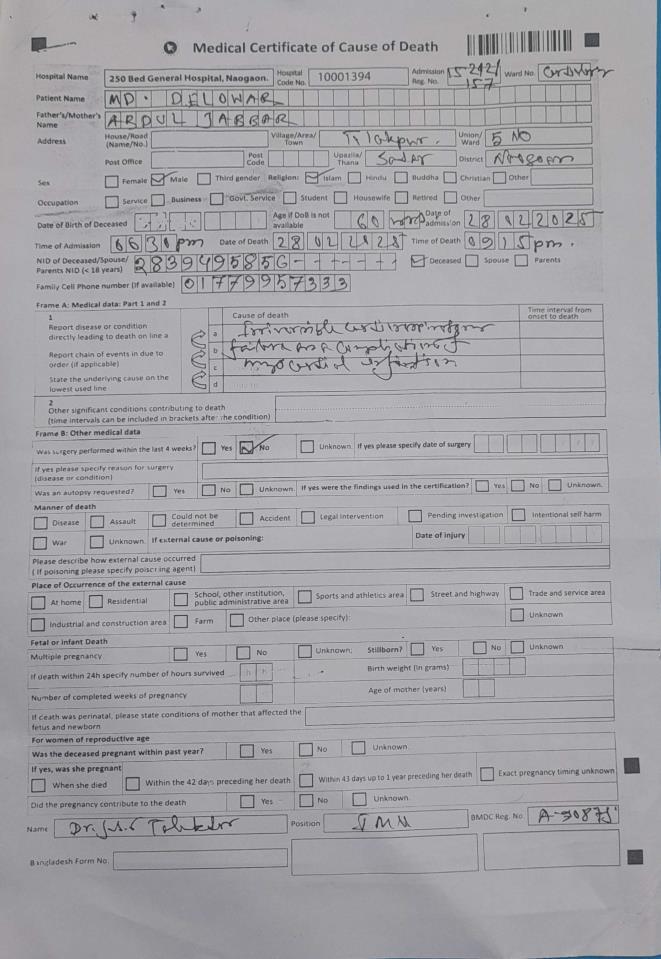 Medical Certificate of Cause of Death
Hospital Name 250 Bed General Hospital, Naogaon. Hospital Code No. 10001394 Admission Reg. No. 15242/157 Ward No.
Patient Name MD. DELOWAR
Father's/Mother's Name ABDUL JABBAR
Address House/Road (Name/No.) Village/Area/Town Tilakpur. Union/Ward 5 NO
Post Office Post Code Upazila/Thana Sadar District Naogaon
Sex Female Male Third gender Religion: Islam Hindu Buddha Christian Other
Occupation Service Business Govt. Service Student Housewife Retired Other
Date of Birth of Deceased Age if DoB is not available 60 Date of admission 28022025
Time of Admission 0630pm Date of Death 28022025 Time of Death 0915pm.
NID of Deceased/Spouse/Parents NID (< 18 years) 2839495856 Deceased Spouse Parents
Family Cell Phone number (if available) 01779957333
Frame A: Medical data: Part 1 and 2
1 Cause of death Time interval from onset to death
Report disease or condition directly leading to death on line a a irreversible cardiorespiratory
Report chain of events in due to order (if applicable) b failure as a complication of
c myocardial infarction
State the underlying cause on the lowest used line d
2
Other significant conditions contributing to death (time intervals can be included in brackets after the condition)
Frame B: Other medical data
Was surgery performed within the last 4 weeks? Yes No Unknown. If yes please specify date of surgery
If yes please specify reason for surgery (disease or condition)
Was an autopsy requested? Yes No Unknown If yes were the findings used in the certification? Yes No Unknown.
Manner of death
Disease Assault Could not be determined Accident Legal intervention Pending investigation Intentional self harm
War Unknown. If external cause or poisoning: Date of injury
Please describe how external cause occurred (If poisoning please specify poisoning agent)
Place of Occurrence of the external cause
At home Residential School, other institution, public administrative area Sports and athletics area Street and highway Trade and service area
Industrial and construction area Farm Other place (please specify): Unknown
Fetal or Infant Death
Multiple pregnancy Yes No Unknown; Stillborn? Yes No Unknown
If death within 24h specify number of hours survived h h Birth weight (in grams)
Number of completed weeks of pregnancy Age of mother (years)
If death was perinatal, please state conditions of mother that affected the fetus and newborn
For women of reproductive age
Was the deceased pregnant within past year? Yes No Unknown.
If yes, was she pregnant
When she died Within the 42 days preceding her death Within 43 days up to 1 year preceding her death Exact pregnancy timing unknown
Did the pregnancy contribute to the death Yes No Unknown.
Name Dr. Position IMO BMDC Reg. No. A-50875
Bangladesh Form No.